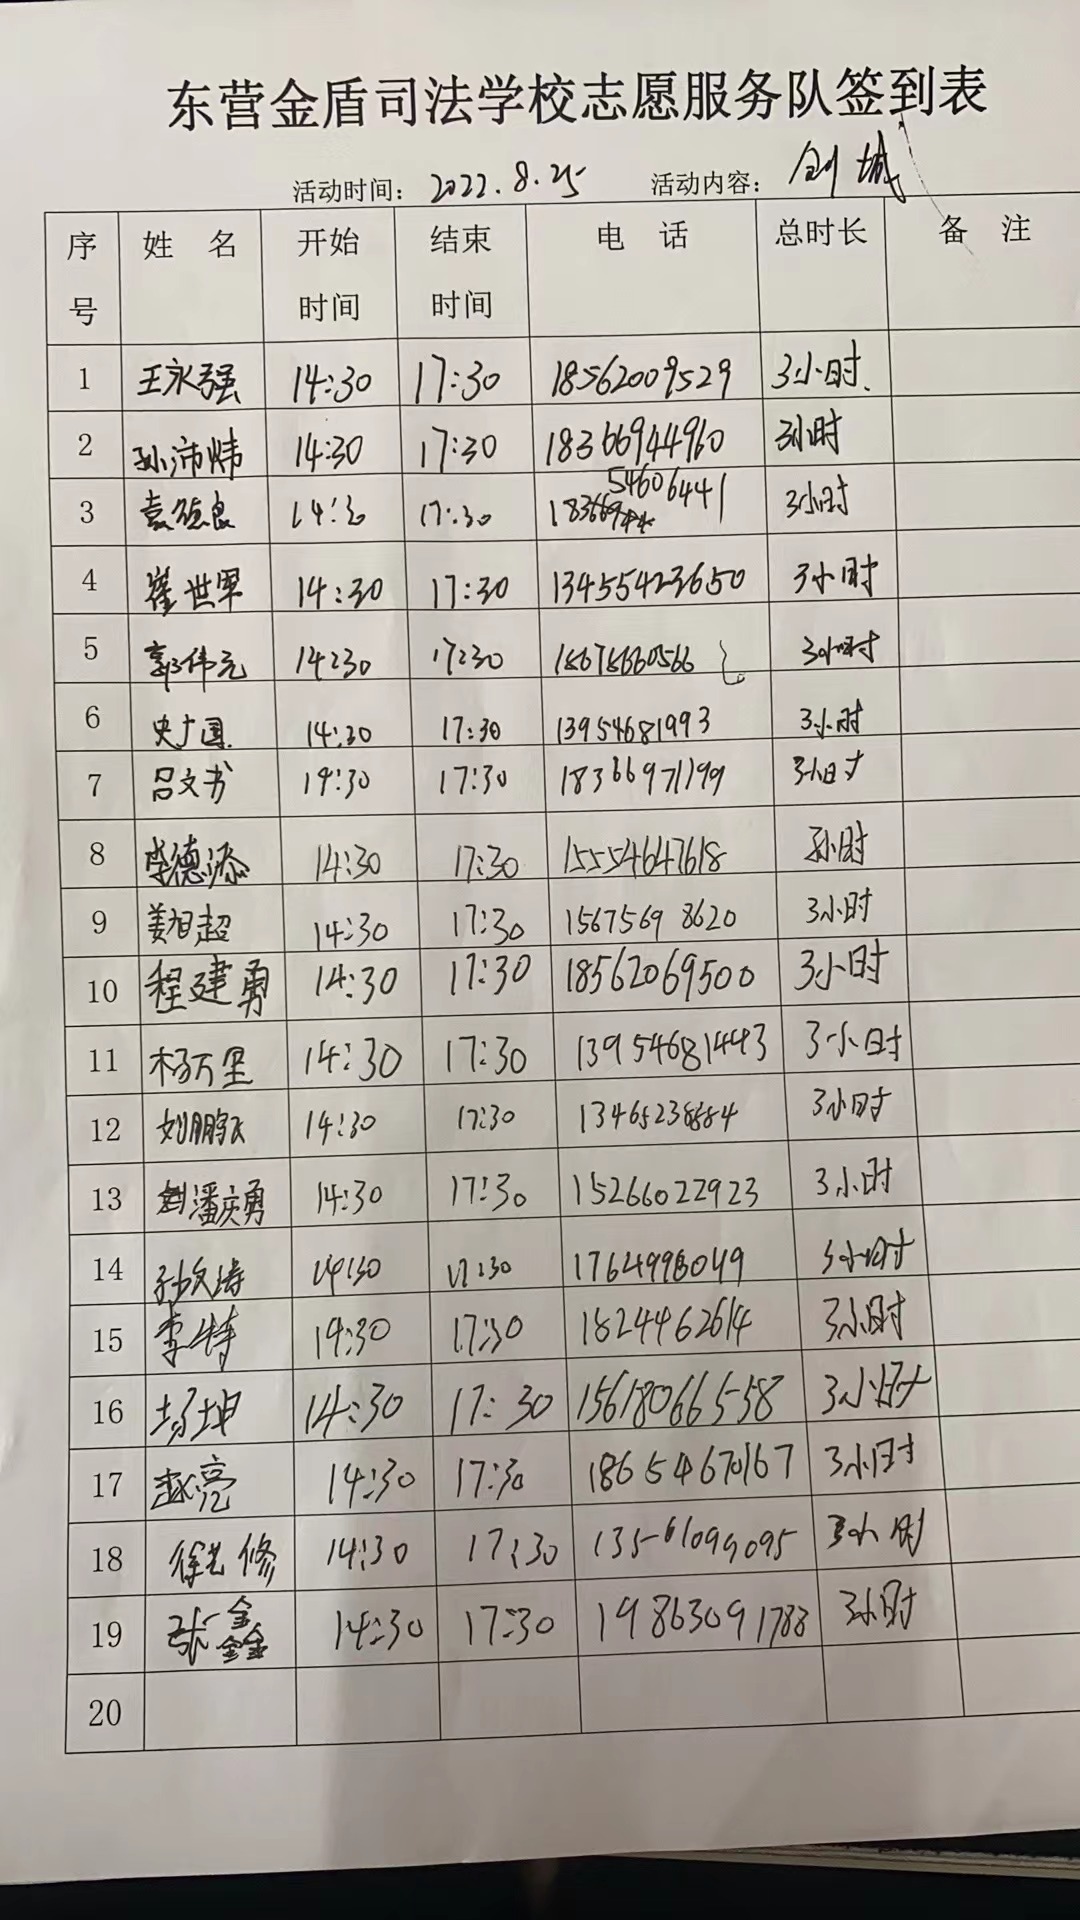 东营金盾司法学校志愿服务队签到表
活动时间：2022.8.25 活动内容：创城
序号 姓名 开始时间 结束时间 电话 总时长 备注
1 王永强 14:30 17:30 18562009529 3小时
2 孙沛炜 14:30 17:30 18366944960 3小时
3 袁德良 14:30 17:30 18366954606441 3小时
4 崔世军 14:30 17:30 13455423650 3小时
5 郭伟元 14:30 17:30 3小时
6 史广国 14:30 17:30 13954681993 3小时
7 吕文书 14:30 17:30 18366971199 3小时
8 李德添 14:30 17:30 15554647618 3小时
9 姜旭超 14:30 17:30 15675698620 3小时
10 程建勇 14:30 17:30 18562069500 3小时
11 杨万里 14:30 17:30 13954681443 3小时
12 刘鹏飞 14:30 17:30 13465238684 3小时
13 潘庆勇 14:30 17:30 15266022923 3小时
14 孙文涛 14:30 17:30 3小时
15 李特 14:30 17:30 1824462614 3小时
16 杨坤 14:30 17:30 15618066558 3小时
17 赵亮 14:30 17:30 18654670167 3小时
18 徐艺修 14:30 17:30 13561099095 3小时
19 张鑫鑫 14:30 17:30 19863091788 3小时
20